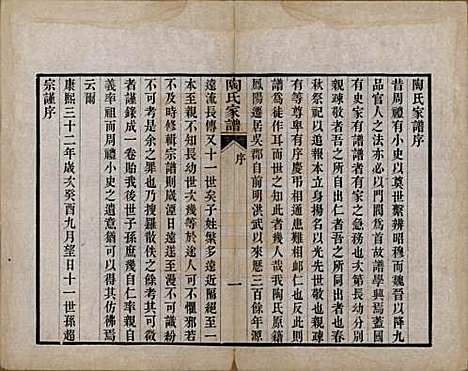 陶氏家譜序
昔周禮有小史以奠世繫辨昭穆而魏晉以降九
品官人之法亦必主門閥焉故譜學典焉蓋國
有史家有譜譜者有家之急務也大第長幼分別
親疎敬者吾之所自出仁者吾之所同出春
秋祭祀以追報本立身揚名以光先世敬也親疎
有等尊卑有序慶弔相聯患難相卹仁也反此則
譜為徒作耳而世之知此者幾人哉我陶氏原籍
鳳陽遷居吳郡自前明洪武以來歷三百餘年源
陶氏家譜
序
一
遠流長傳又十一世矣子姓繁多遠近隔絕至一
本至親不知其幼大幾不相識者有之不可懼邪若
不及時修輯宗譜則歲湮日遠遂至於不可識矜
余之罪也夫罪也夫爰是不憚勞乃搜羅散佚之諸
者謹錄成一卷貽我後世子孫庶幾自仁率親自
義率祖而周禮小史之遺意猶可以彷彿焉
云爾
康熙三十二年歲次癸酉九月望日十一世孫超
宗謹序